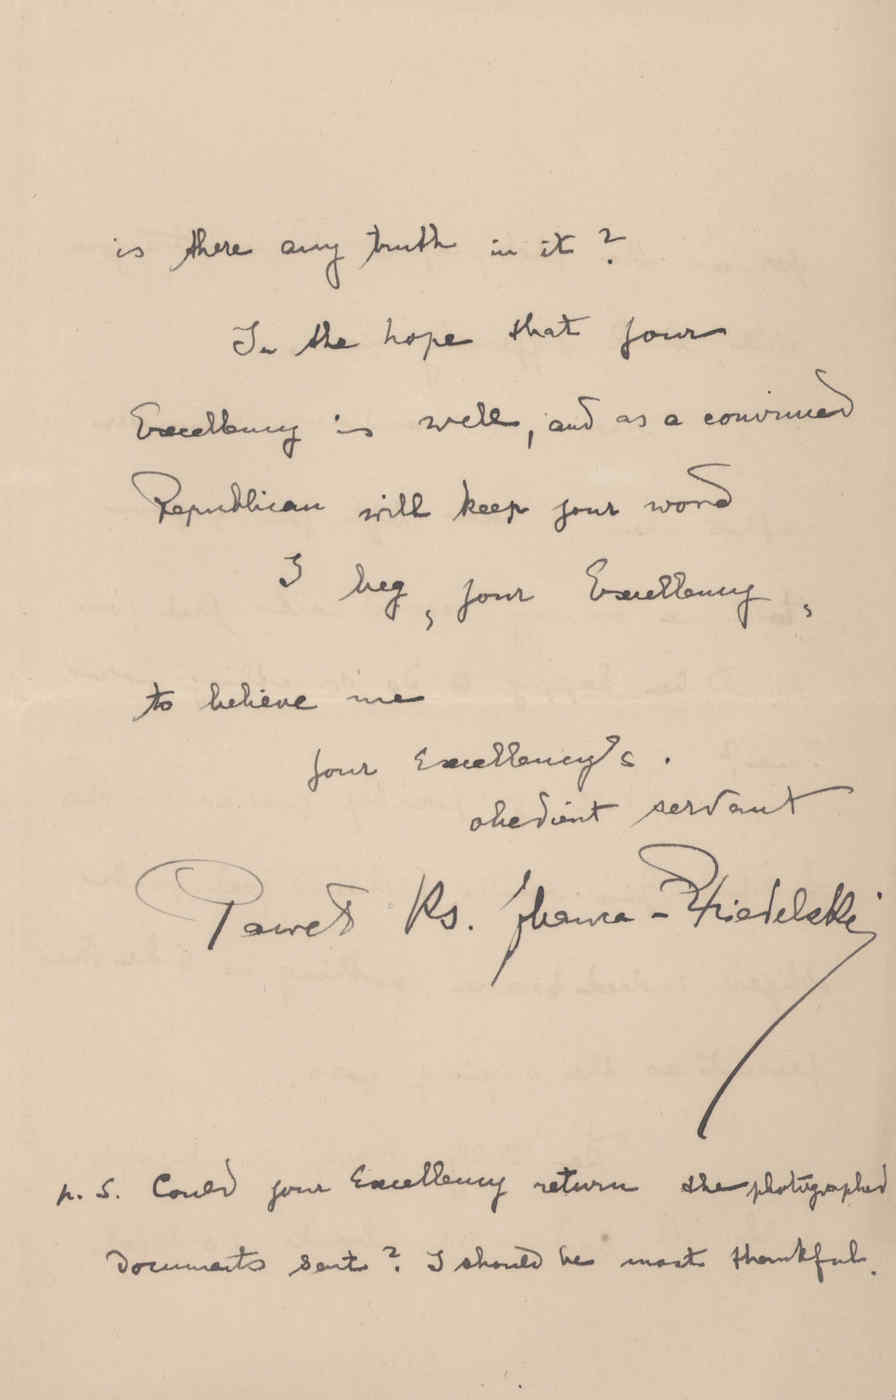 is there any truth in it?
In the hope that your
Excellency is well, and as a convinced
Republican will keep your word
I beg, your Excellency,
to believe me
your Excellency's.
obedient servant
Paweł Ks.
p. s. Could your Excellency return the photographed
documents sent? I should be most thankful.